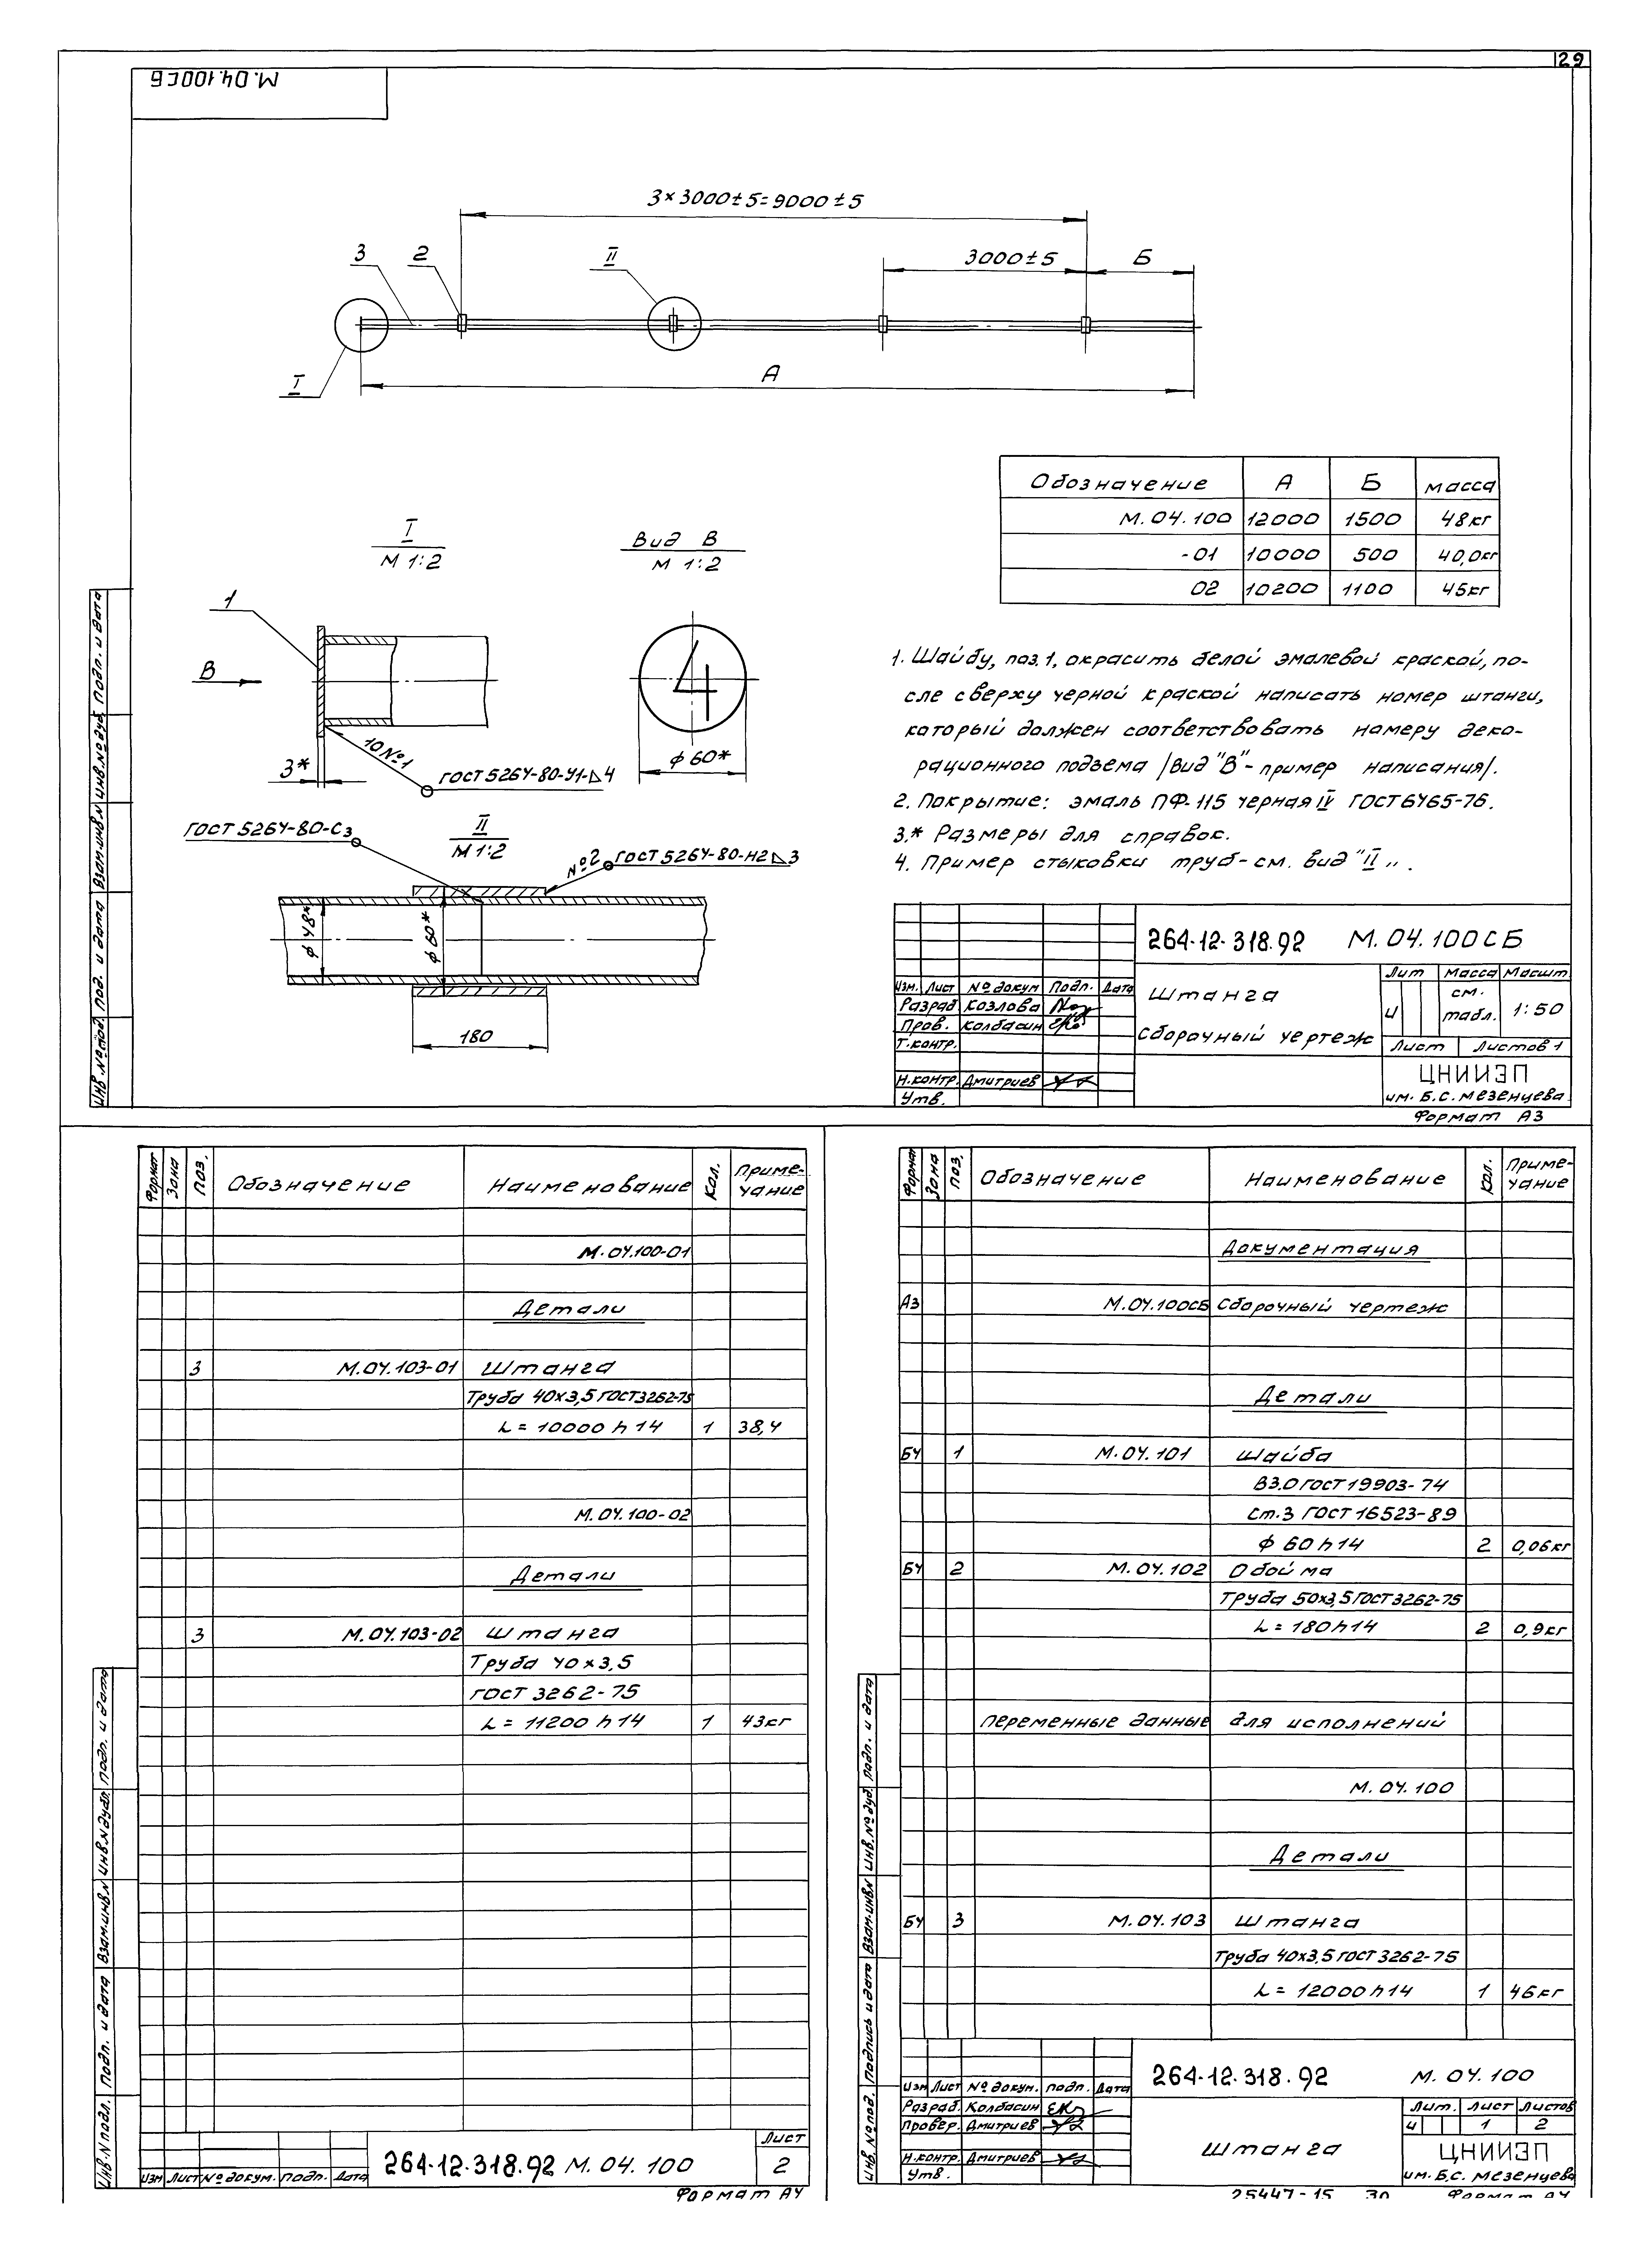 29
М.04.100СБ
3×3000±5=9000±5
3
2
II
3000±5
Б
I
А
Обозначение А Б Масса
М.04.100 12000 1500 48кг
-01 10000 500 40,0кг
02 10200 1100 45кг
I
М 1:2
Вид В
М 1:2
1
В
4
3*
10 №1
ГОСТ 5264-80-У1-⊿4
ф 60*
ГОСТ 5264-80-С3
II
М 1:2
№2
ГОСТ 5264-80-Н2⊿3
ф 48*
ф 60*
180
1. Шайбу, поз.1, окрасить белой эмалевой краской, по-
сле сверху черной краской написать номер штанги,
который должен соответствовать номеру деко-
рационного подъема /вид "В"- пример написания/.
2. Покрытие: эмаль ПФ-115 черная IV ГОСТ 6465-76.
3.* Размеры для справок.
4. Пример стыковки труб-см. вид "II".
264-12-318.92 М.04.100СБ
Изм. Лист № докум Подп. Дата
Разраб Козлова
Пров. Колбасин
Т.контр.
Н.контр. Дмитриев
Утв.
Штанга
сборочный чертеж
Лит Масса Масшт
И см. табл. 1:50
Лист Листов 1
ЦНИИЭП
им. Б.С. Мезенцева
Формат А3
Инв.№под. Под. и дата Взам.инв.№ Инв.№дуб. Подп. и дата
Формат Зона Поз. Обозначение Наименование Кол. Приме-
чание
М.04.100-01
Детали
3 М.04.103-01 Штанга
Труба 40х3,5 ГОСТ3262-75
L= 10000 h14 1 38,4
М.04.100-02
Детали
3 М.04.103-02 Штанга
Труба 40х3,5
ГОСТ 3262-75
L= 11200 h14 1 43кг
Инв.№подл. Подп. и дата Взам.инв.№ Инв.№дубл. Подп. и дата
Изм Лист № докум. Подп. Дата
264-12-318.92 М.04.100
Лист
2
Формат А4
Формат Зона Поз. Обозначение Наименование Кол. Приме-
чание
Документация
А3 М.04.100СБ Сборочный чертеж
Детали
БЧ 1 М.04.101 Шайба
В3.0 ГОСТ 19903-74
Ст.3 ГОСТ 16523-89
ф 60 h14 2 0,06кг
БЧ 2 М.04.102 Обойма
Труба 50х3,5 ГОСТ 3262-75
L= 180h14 2 0,9кг
Переменные данные для исполнений
М.04.100
Детали
БЧ 3 М.04.103 Штанга
Труба 40х3,5 ГОСТ 3262-75
L= 12000h14 1 46кг
Инв.№под. Подпись и дата Взам.инв.№ Инв.№дуб. Подп. и дата
264-12-318.92 М.04.100
Изм Лист № докум. Подп. Дата
Разраб. Колбасин
Провер. Дмитриев
Н.контр. Дмитриев
Утв.
Штанга
Лит. Лист Листов
И 1 2
ЦНИИЭП
им. Б.С. Мезенцева
25447-15 30 Формат А4